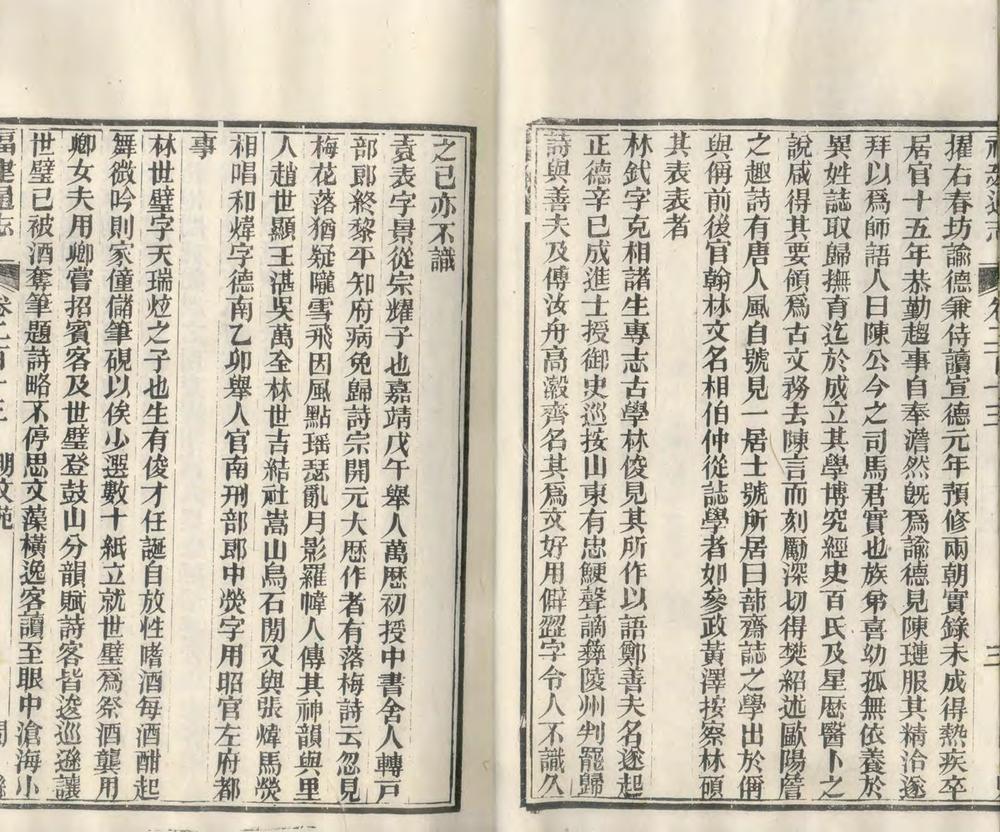 擢右春坊諭德兼侍讀宣德元年預修兩朝實錄未成得熱疾卒
居官十五年恭勤趨事自奉澹然旣爲諭德見陳璉服其精洽遂
拜以爲師語人曰陳公今之司馬君實也族弟喜幼孤無依養於
異姓誌取歸撫育迄於成立其學博究經史百氏及星厯醫卜之
說咸得其要領爲古文務去陳言而刻勵深切得樊紹述歐陽詹
之趣詩有唐人風自號見一居士號所居曰蔀齋誌之學出於偁
與偁前後官翰林文名相伯仲從誌學者如參政黃澤按察林碩
其表表者
林釴字克相諸生專志古學林俊見其所作以語鄭善夫名遂起
正德辛巳成進士授御史巡按山東有忠鯁聲謫彝陵州判罷歸
詩與善夫及傅汝舟高瀔齊名其爲文好用僻澀字令人不識久
之已亦不識
袁表字景從宗耀子也嘉靖戊午舉人萬厯初授中書舍人轉戸
部郎終黎平知府病免歸詩宗開元大厯作者有落梅詩云忽見
梅花落猶疑隴雪飛因風點瑤瑟亂月影羅幃人傳其神韻與里
人趙世顯王湛吳萬全林世吉結社嵩山烏石閒又與張煒馬熒
相唱和煒字德南乙卯舉人官南刑部郎中熒字用昭官左府都
事
林世璧字天瑞炫之子也生有俊才任誕自放性嗜酒每酒酣起
舞微吟則家僮儲筆硯以俟少選數十紙立就世璧爲祭酒龔用
卿女夫用卿嘗招賓客及世璧登鼓山分韻賦詩客皆逡巡遜讓
世璧已被酒奪筆題詩略不停思文藻橫逸客讀至眼中滄海小
福建通志 卷二百十三 明文苑